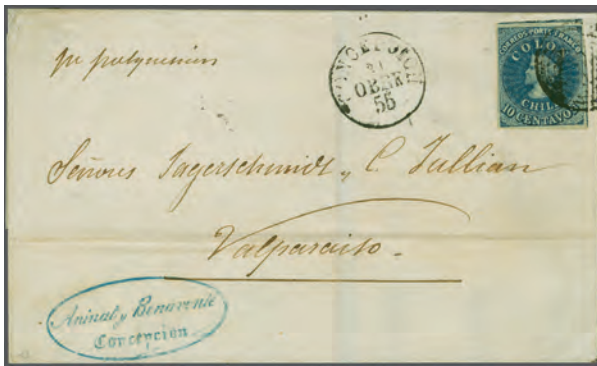 CONCEPCION
OBRE
55
CORREOS PORTE FRANCO
COLON
CHILE
10 CENTAVOS
Señores Jagerschmidt y C. Jullian
Valparaiso.
Aninat y Benavente
Concepcion